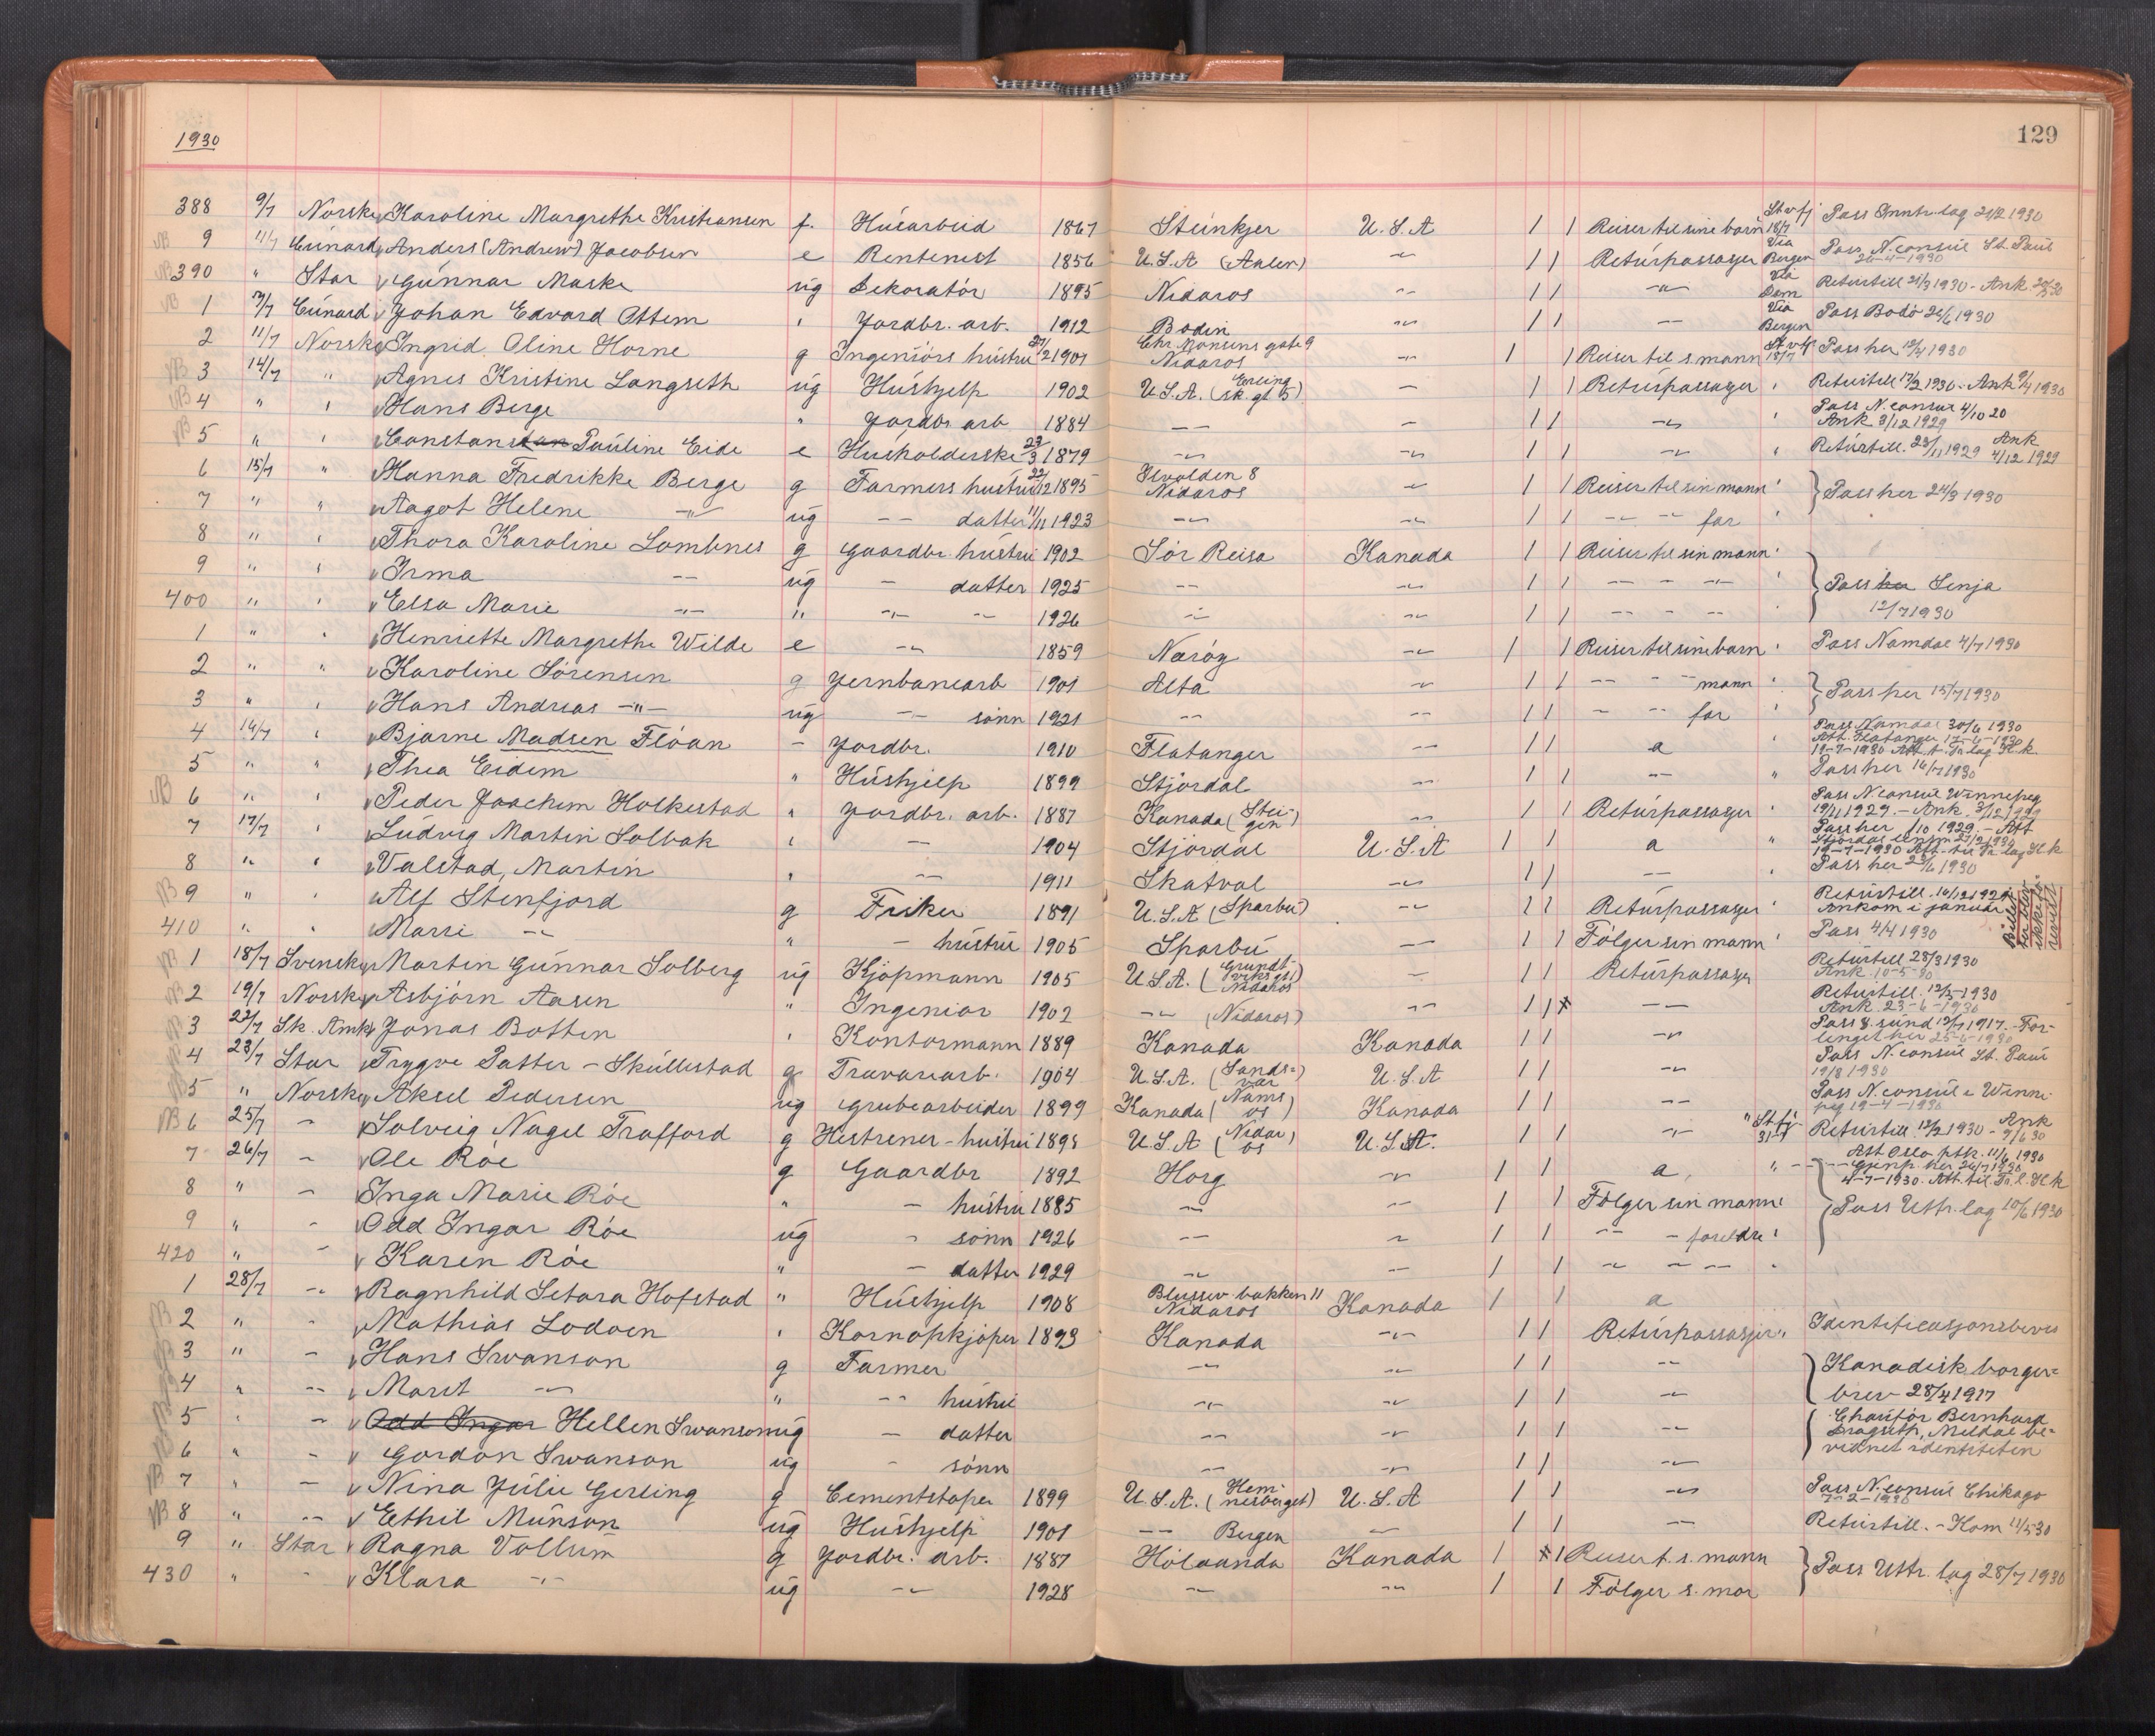 1930
129
388 9/7 Norske Karoline Margrethe Kristiansen f. Husarbeid 1867 Steinkjer U.S.A 1 1 Reiser til sine barn St.v.fj 18/7 Pass Inntr.lag 21/2 1930
9 Cunard Anders (Andrew) Jacobsen e Rentenist 1856 U.S.A (Aalen) -"- 1 1 Returpassasjer Via Bergen Pass N.consul St. Paul 26-4-1930
390 " Star Gunnar Maske ug Dekoratør 1895 Nidaros -"- 1 1 -"- Via Dom Returtill 21/3 1930 - Ank
1 7/7 Cunard Johan Edvard Ottem " Jordbr. arb. 1912 Bodin -"- 1 1 -"- Via Bergen Pass Bodø 26/6 1930
2 11/7 Norske Ingrid Oline Horne g Ingeniørs hustru 1901 Chr. Monsens gate 9 Nidaros -"- 1 1 Reiser til s. mann 18/7 Pass her 12/4 1930
3 14/7 " Agnes Kristine Langseth ug Hushjelp 1902 U.S.A. (Erling sk. gt 5) - 1 1 Returpassasjer " Returtill 17/2 1930 - Ank 9/4 1930
4 " " Hans Berge " Jordbr. arb 1884 -- - 1 1 -"- " Pass N. consul 4/10 20 Ank 3/12 1929
5 " " Constanstan Pauline Eide e Husholderske 23/3 1879 -"- -"- 1 1 -"- " Returtill. 23/11 1929 Ank 4/12 1929
6 15/7 " Hanna Fredrikke Berge g Farmers hustru 22/12 1895 Ilevolden 8 Nidaros -"- 1 1 Reiser til sin mann " } Pass her 24/3 1930
7 " " Aagot Helene -"- ug -- datter 11/11 1923 -"- -"- 1 1 -- -- far "
8 " " Thora Karoline Lambnes g Gaardbr. hustru 1902 Sør Reisa Kanada 1 1 Reiser til sin mann "
9 " " Irma -- ug - datter 1925 -- -"- 1 1 -- - -"- " } Pass her Senja
400 " " Elsa Marie -"- " -"- -- 1926 -"- -"- 1 1 -- - -- " 12/7 1930
1 " " Henriette Margrethe Wilde e -"- 1859 Nærøy -"- 1 1 Reiser til sine barn " Pass Namdal 4/7 1930
2 " " Karoline Sørensen g Jernbanearb 1901 Alta -"- 1 1 -- - mann " } Pass her 15/7 1930
3 " " Hans Andreas -"- ug -- sønn 1921 -- -- 1 1 - -- far "
4 16/7 " Bjarne Madsen Fløan - Jordbr. 1910 Flatanger -- 1 1 a " Pass Namdal 30/6 1930 Att. Flatanger 17-6-1930 19-7-1930 Att. t. Tr.lag Kl.k.
5 " " Thea Eidem " Hushjelp 1899 Stjørdal -- 1 1 -- " Pass her 16/7 1930
6 " " Peder Joachim Holkestad " Jordbr. arb. 1887 Kanada (Steigen) -- 1 1 Returpassasjer " Pass N. consul Winnepeg 19/11 1929 - Ank. 3/12 1929
7 17/7 " Ludvig Martin Solbak " -- 1904 Stjørdal U.S.A 1 1 a " Pass her /10 1929 - Att
8 " " Valstad, Martin " -- 1911 Skatval -"- 1 1 -- " Pass her 23/6 1930
9 " " Alf Stenfjord g Frisker 1891 U.S.A (Sparbu) -"- 1 1 Returpassasjer " Returtill. 16/12 1929 Ankom i januar
410 " " Marie -- " - hustru 1905 Sparbu -- 1 1 Følger sin mann " Pass 4/4 1930
1 18/7 Svenske Martin Gunnar Solberg ug Kjøpmann 1905 U.S.A. (Nidaros) - 1 1 Returpassasjer Returtill 28/3 1930 Ank. 10-5-30
2 19/7 Norske Asbjørn Aasen " Ingeniør 1902 -"- (Nidaros) -- 1 1 -- Returtill. 12/5-1930 Ank 23-6-1930
3 22/7 Sk. Amk Jonas Botten " Kontormann 1889 Kanada Kanada 1 1 -"- Pass 12/7 1917. - Forlenget her 25-6-1930
4 23/7 Star Trygve Satter - Skullestad g Travarearb. 1904 U.S.A. (Sandsvær) U.S.A 1 1 -"- Pass N. consul St. Paul 19/8 1930
5 " Norske Aksel Pedersen ug Grubearbeider 1899 Kanada (Namsos) Kanada 1 1 -- Pass N. consul i Winnipeg 19-4-1930
6 25/7 - Solveig Nagel Trafford g hustru 1898 U.S.A (Nidaros) U.S.A. 1 1 -"- " St.fj. 31-7 Returtill. 12/2 1930 - Ank 9/6 30
7 26/7 - Ole Røe g Gaardbr 1892 Horg -"- 1 1 a. " Att Oslo ptk. 11/6 1930 Gjenp. her 26/7 1930 4-7-1930. Att. til Tr.l. Kl.k
8 " - Inga Marie Røe " - hustru 1885 -- -- 1 1 Følger sin mann " } Pass Uttr. lag 10/6 1930
9 " - Odd Ingar Røe ug - sønn 1926 -- -"- 1 1 -- - foreldre "
420 " - Karen Røe " - datter 1929 -"- -- 1 1 - -- -- "
1 28/7 -"- Ragnhild Petara Hofstad " Hushjelp 1908 Blussuvbakken 11 Nidaros Kanada 1 1 a
2 " - Mathias Lodoen " Kornopkjøper 1893 Kanada -"- 1 1 Returpassasjer " Identificasjonsbevis
3 " - Hans Swanson g Farmer -"- -"- 1 1 -"- } Kanadisk borger=
4 " -- Marit -"- " -- hustru -"- -"- 1 1 -"- brev 28/4 1917
5 " - Odd Ingar Hellen Swanson ug - datter -- -"- 1 1 -"- { Chaufør Bernhard
6 " - Gordon Swanson ug - sønn -- -"- 1 1 -"- Dragseth, Meldal bevidnet identiteten
7 " - Nina Julie Gerling g Cementstøper 1899 U.S.A. (Hemnesberget) U.S.A 1 1 -"- Pass N. consul Chikago 7-2-1930
8 " -- Ethil Munson ug Hushjelp 1901 -- Bergen -- 1 1 -- Returtill. - Kom 11/5 30
9 " Star Ragna Vollum g Jordbr. arb. 1887 Hølaanda Kanada 1 1 Reiser t. s. mann } Pass Uttr. lag 28/7 1930
430 " - Klara -"- ug -"- 1928 -"- -"- 1 1 Følger s. mor